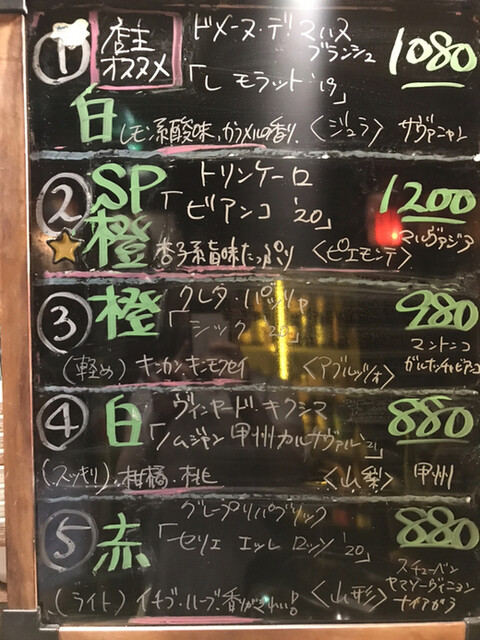 ① 店主オススメ ドメーヌ・デ・マルヌ ブランシュ 1080
「レ モラット'19」
白 レモン系酸味、カラメルの香り 〈ジュラ〉 サヴァニャン
② SP橙 トリンケーロ 1200
「ビアンコ '20」 マルヴァジア
杏子系旨味たっぷり 〈ピエモンテ〉
③ 橙 クレタ・パッリャ 980
「シック '20」 マントニコ
(軽め) キンカン、キンモクセイ 〈アブルッツォ〉
④ 白 ヴィンヤード・キクシマ 880
「ノムジャン 甲州カルサヴァル'21」
(スッキリ)、柑橘・桃 〈山梨〉 甲州
⑤ 赤 グレープリパブリック 880
「セリエ エッレ ロッソ '20」 スチューベン
ヤマソーヴィニヨン
(ライト) イチゴ・ハーブ、香りがきれい! 〈山形〉 ナイアガラ